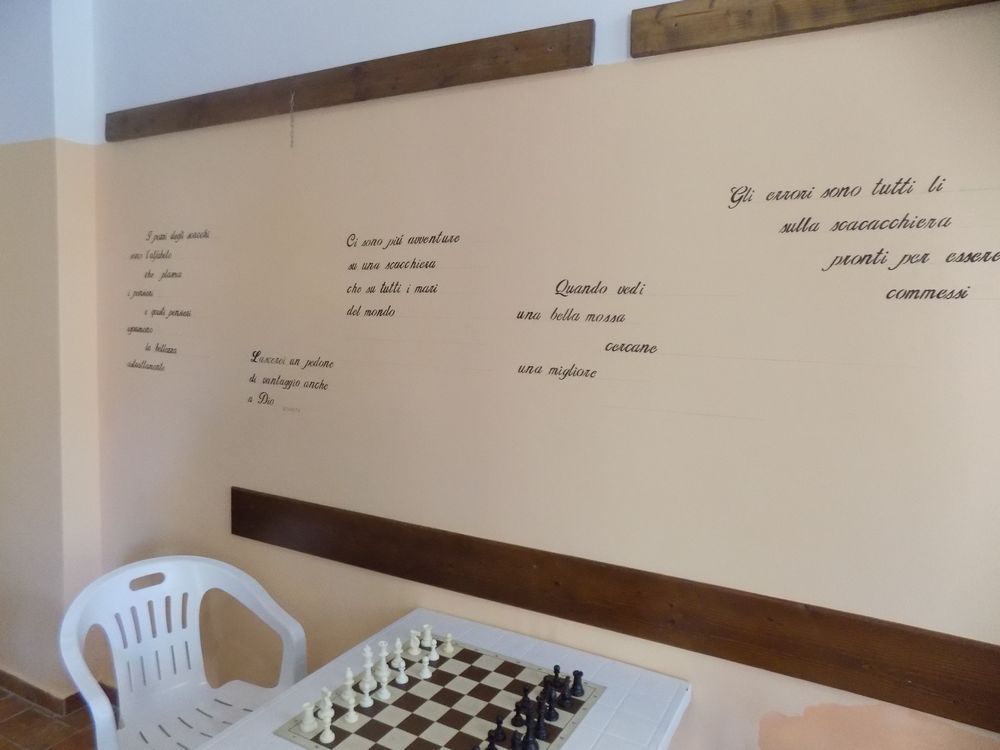 I pezzi degli scacchi
sono l'alfabeto
che plasma
i pensieri
e questi pensieri
esprimono
la bellezza
astrattamente
Lascerei un pedone
di vantaggio anche
a Dio
Ci sono più avventure
su una scacchiera
che su tutti i mari
del mondo
Quando vedi
una bella mossa
cercane
una migliore
Gli errori sono tutti li
sulla scacacchiera
pronti per essere
commessi